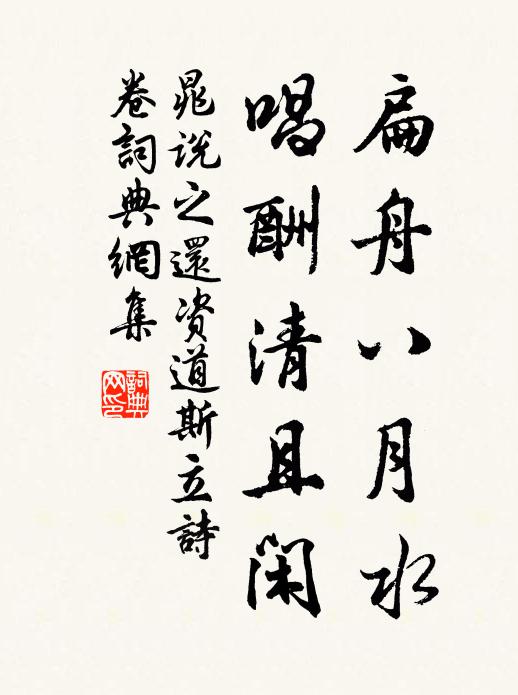 扁舟八月水
唱酬清且閑
晁說之還资道斯立詩
卷詞典網集
詞典
网印